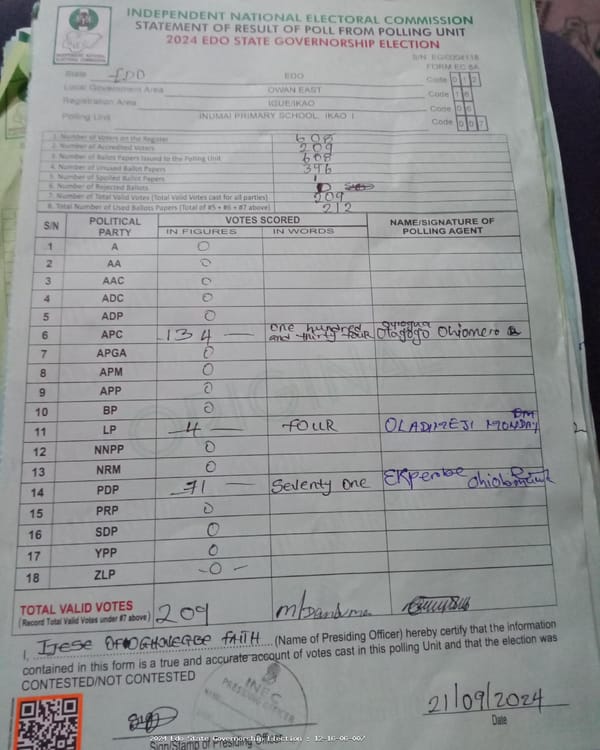 INDEPENDENT NATIONAL ELECTORAL COMMISSION
STATEMENT OF RESULT OF POLL FROM POLLING UNIT
2024 EDO STATE GOVERNORSHIP ELECTION
FORM EC 8A
State EDO EDO Code 012
Local Government Area OWAN EAST Code 16
Registration Area IGUE/IKAO Code 06
Polling Unit INUMAI PRIMARY SCHOOL, IKAO I Code 007
1. Number of Voters on the Register 608
2. Number of Accredited Voters 209
3. Number of Ballot Papers Issued to the Polling Unit 608
4. Number of Unused Ballot Papers 396
5. Number of Spoiled Ballot Papers 1
6. Number of Rejected Ballots
7. Number of Total Valid Votes (Total Valid Votes cast for all parties) 209
8. Total Number of Used Ballots Papers (Total of #5 + #6 + #7 above) 212
S/N POLITICAL PARTY VOTES SCORED NAME/SIGNATURE OF POLLING AGENT
IN FIGURES IN WORDS
1 A 0
2 AA 0
3 AAC 0
4 ADC 0
5 ADP 0
6 APC 134 one hundred and thirty four Ohiomero
7 APGA 0
8 APM 0
9 APP 0
10 BP 0
11 LP 4 FOUR OLADIMEJI MONDAY
12 NNPP 0
13 NRM 0
14 PDP 71 Seventy One
15 PRP 0
16 SDP 0
17 YPP 0
18 ZLP 0
TOTAL VALID VOTES 209
(Record Total Valid Votes under #7 above)
I, FAITH (Name of Presiding Officer) hereby certify that the information
contained in this form is a true and accurate account of votes cast in this polling Unit and that the election was
CONTESTED/NOT CONTESTED
INEC
PRESIDING OFFICER
21/09/2024
Date
Sign/Stamp of Presiding Officer
2024 Edo State Governorship Election : 12-16-06-007
ORIGINAL